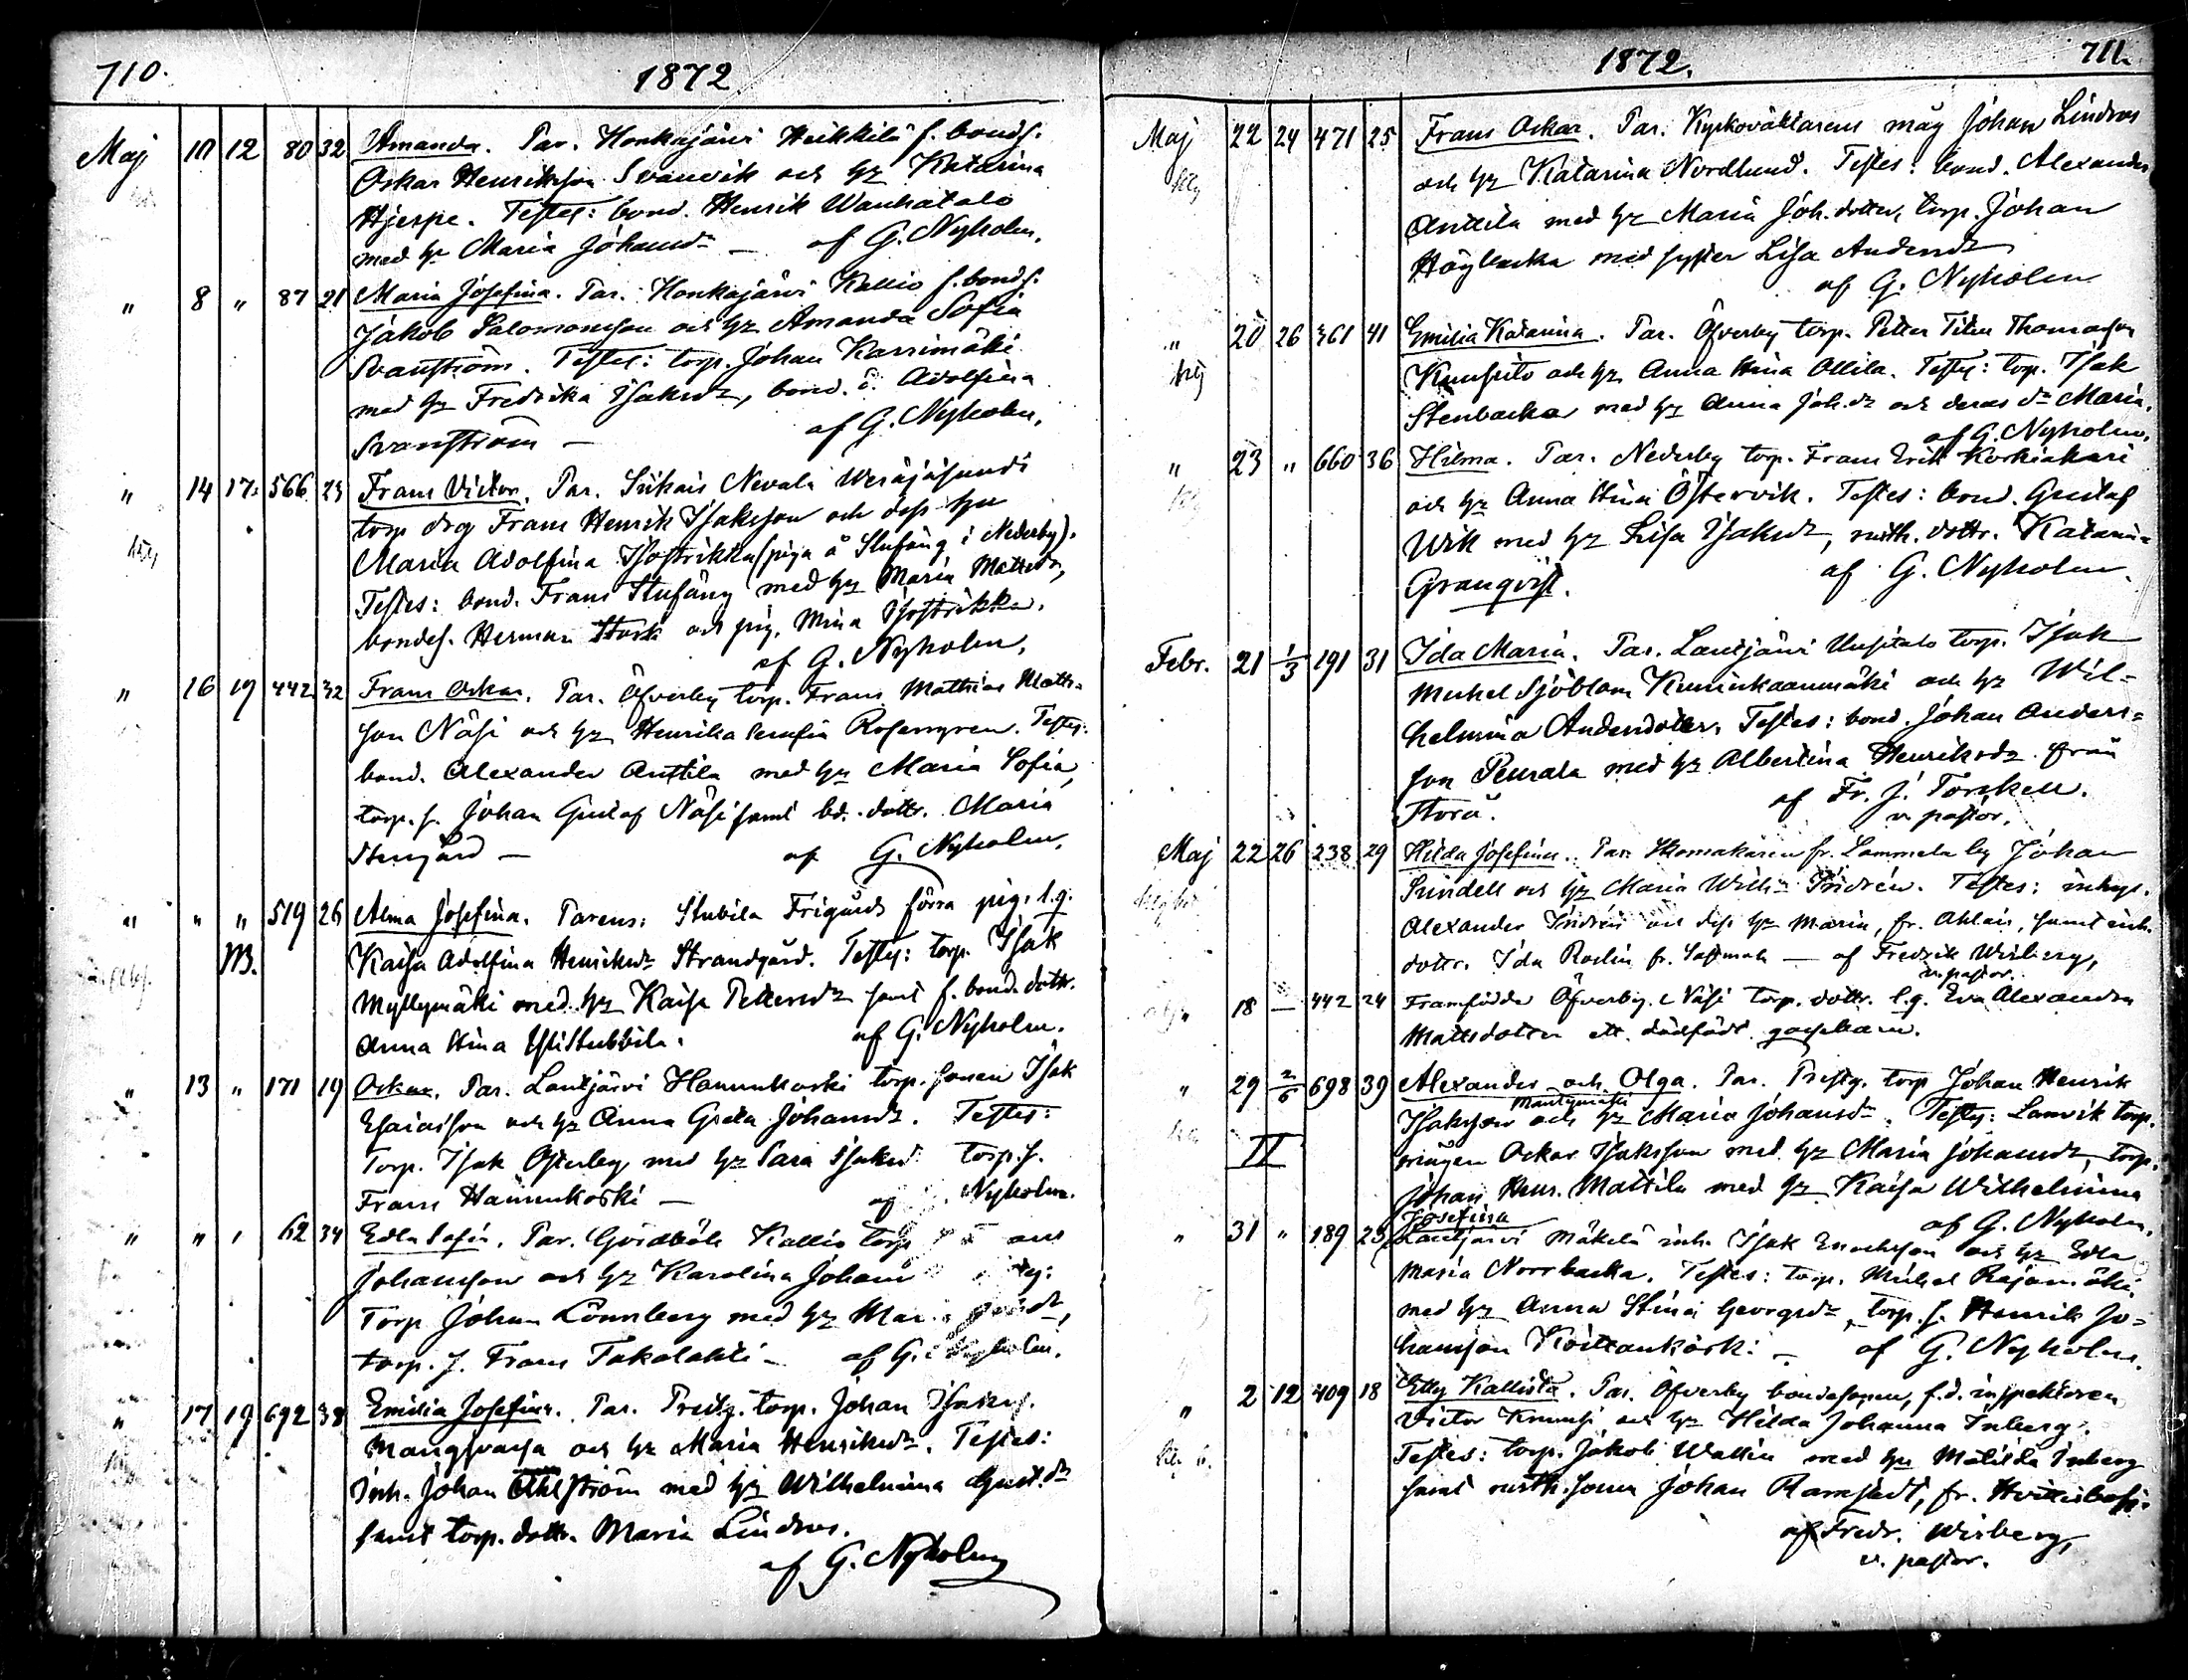 710.
1872
Maj 10 12 80 32 Amanda. Par. Honkajärvi Heikkilä f. bonds.
Oskar Henriksson Svanvik och hz Katarina
Hjerpe. Testes: bond. Henrik Wanhatalo
med hr Maria Johansdr — af G. Nyholm.
" 8 " 87 21 Maria Josefina. Par. Honkajärvi Kallio f. bonds.
Jakob Salomonsson och hz Amanda Sofia
Svanström. Testes: torp. Johan Karrimäki
med hz Fredrika Isaksdr, bond. d. Adolfina
Svanström — af G. Nyholm.
" 14 17 566 23 Frans Victor. Par. Siikais Nevala
torp drg Frans Henrik Isaksson och dess hu
Maria Adolfina Isostrikka (piga å Stufäng i Nederby).
Testes: bond. Frans Stufäng med hz Maria Mattsdr,
bondes. Herman Stork och pig. Mina Isostrikka.
af G. Nyholm.
" 16 19 442 32 Frans Oskar. Par. Öfverby torp. Frans Mathias Matts-
son Näsi och hz Henrika Serafia Rosengren. Testes:
bond. Alexander Anttila med hz Maria Sofia,
torp. s. Johan Gustaf Näsi samt bd. dottr. Maria
Stengård — af G. Nyholm.
" " " 519 26 Alma Josefina. Parens: Stubila Frigårds förra pig. l.q.
Kaisa Adolfina Henriksdr Strandgård. Testes: torp. Isak
Myllymäki med hz Kaisa Pettersdr samt f. bond. dottr.
Anna Stina Ylistubbila. af G. Nyholm.
" 13 " 171 19 Oskar. Par. Lankjärvi Hannukoski torp. sonen Isak
Esaiasson och hz Anna Greta Johansdr. Testes:
Torp. Isak Österby, med hz Sara Isaksd torp. s.
Frans Hannukoski — af Nyholm.
" " " 62 34 Edla Sofia. Par. Kallio torp
Johansson och hz Karolina Johans
Torp Johan Lönnberg med hz Mar
torp. s. Frans Takalahti — af G. Nyholm.
" 17 19 692 38 Emilia Josefina. Par. Prestg. torp. Johan Isakss.
och hz Maria Henriksdr. Testes:
Inh. Johan Ahlström med hz Wilhelmina Gust.dr
samt torp. dottr. Maria Lindros.
af G. Nyholm
1872.
711.
Maj 22 24 471 25 Frans Oskar. Par. Kyrkovaktarens måg Johan Lindros
och hz Katarina Nordlund. Testes: bond. Alexander
Anttila med hz Maria Joh. dotter, torp. Johan
Högbacka med syster Lisa Andersdr
af G. Nyholm
" 20 26 361 41 Emilia Katarina. Par. Öfverby torp. Petter Thomasson
och hz Anna Stina Ollila. Testes: torp. Isak
Stenbacka med hz Anna Joh.dr och deras dr Maria.
af G. Nyholm.
" 23 " 660 36 Hilma. Par. Nederby torp. Frans Erik Korkiakari
och hz Anna Stina Östervik. Testes: bond. Gustaf
Wik med hz Lisa Isaksdr, rusth. dottr. Katarina
Granqvist. af G. Nyholm.
Febr. 21 1/3 191 31 Ida Maria. Par. Lankjärvi Uusitalo torp. Isak
Mickel Sjöblom Kuninkaanmäki och hz Wil-
helmina Andersdotter. Testes: bond. Johan Anders-
son Peurala med hz Albertina Henriksdr från
Storå. af Fr. J. Torckell.
v. pastor.
Maj 22 26 238 29 Hilda Josefina. Par. Skomakaren fr. Lammela by Johan
Sundell och hz Maria Wilh. Indrén. Testes: inhys.
Alexander Indrén och dess hz Maria, fr. Ahlais, samt inh.
dottr. Ida Roslin fr. Sastmola — af Fredrik Wirberg,
v. pastor.
" 18 — 442 24 Framfödde Öfverby Näsi torp. dottr. l.q. Eva Alexandra
Mattsdotter ett dödfödt gossebarn.
" 29 2/6 698 39 Alexander och Olga. Par. Prestg. torp Johan Henrik
Isaksson och hz Maria Johansdr. Testes: Lamvik torp.
mågen Oskar Isaksson med hz Maria Johansdr, torp.
II
Johan Henr. Mattila med hz Kaisa Wilhelmina
af G. Nyholm.
Josefina
" 31 " 189 25 Lankjärvi Mäkelä inh. Isak Enochsson och hz Edla
Maria Norrbacka. Testes: torp. Mickel Rajamäki
med hz Anna Stina Georgsdr, torp. s. Henrik Jo-
hansson Koittankoski — af G. Nyholm.
" 2 12 409 18 Elly Kallista. Par. Öfverby bondesonen, f.d. inspektoren
Victor Krunsi och hz Hilda Johanna Inberg.
Testes: torp. Jakob Wallin med hu Matilda Inberg
samt rusth. sonen Johan Ramstedt, fr. Hvittisbofj.
af Fredr. Wirberg,
v. pastor.